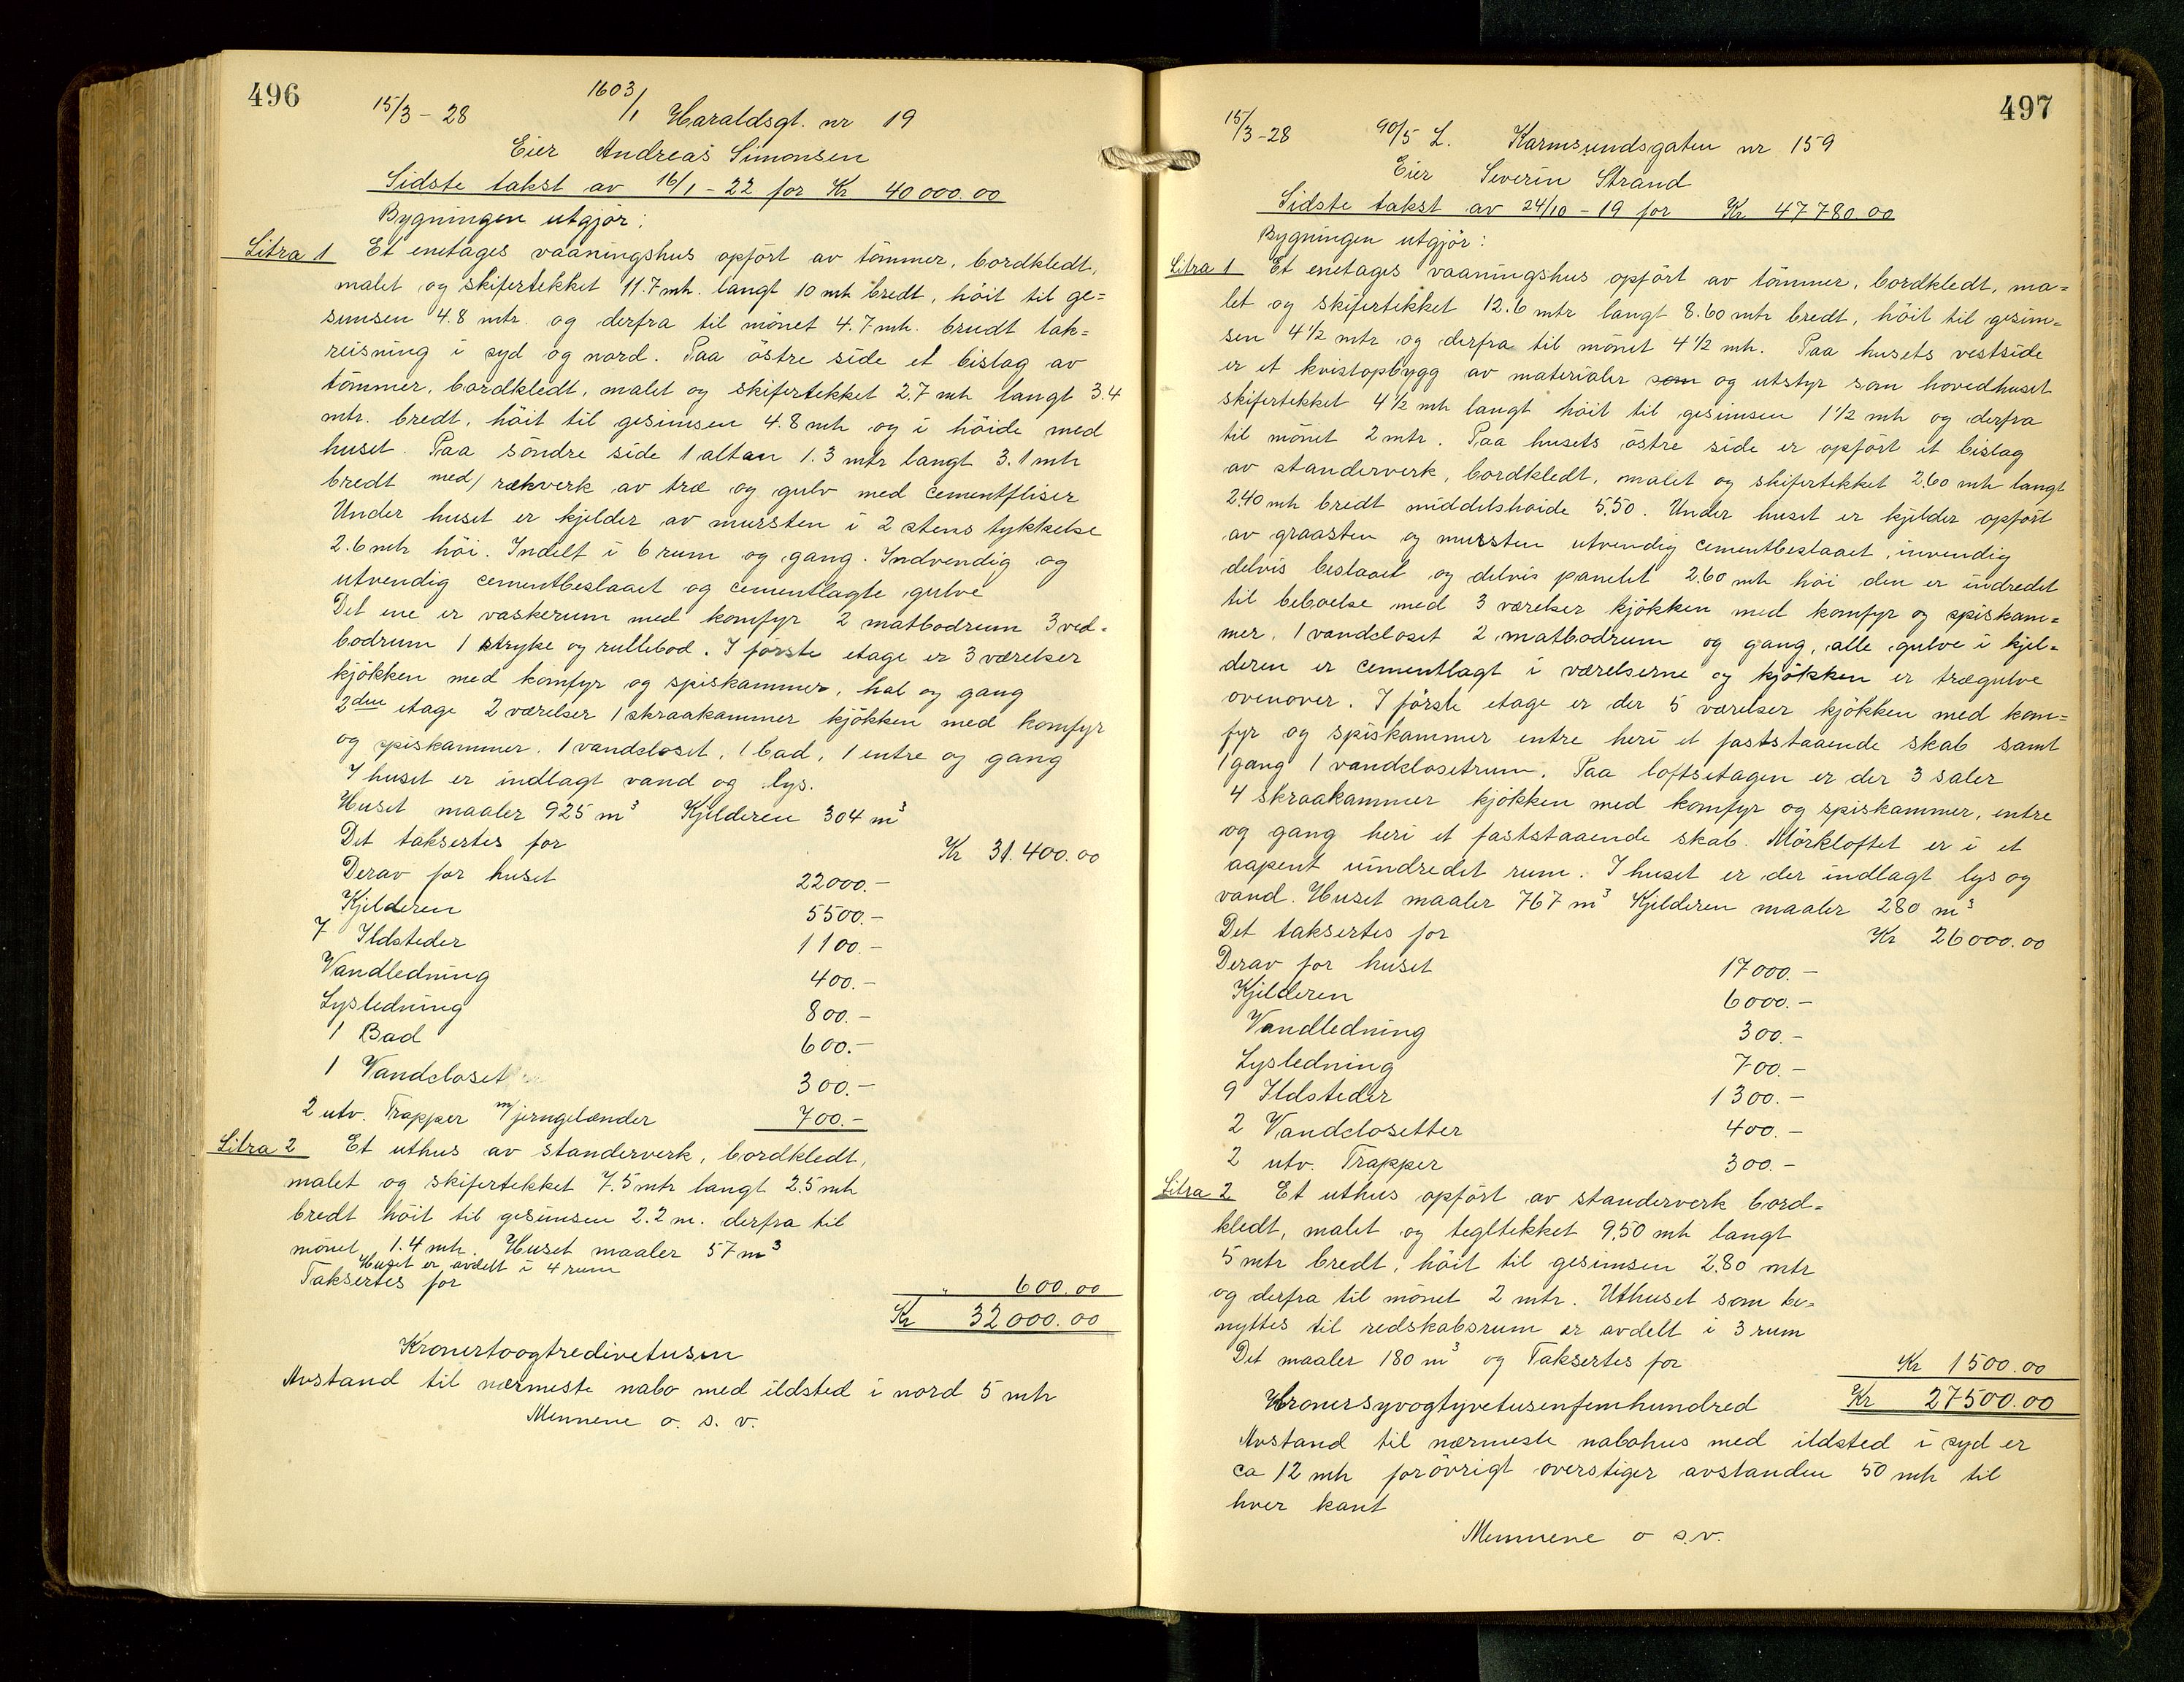 496
15/3 - 28
1603/1 Haraldsgt. nr 19
Eier Andreas Simonsen
Sidste takst av 16/1 - 22 for Kr 40 000.00
Bygningen utgjør:
Litra 1 Et enetages vaaningshus opført av tømmer, bordkledt,
malet og skifertekket 11.7 mtr. langt 10 mtr bredt, høit til ge=
simsen 4.8 mtr. og derfra til mønet 4.7 mtr. brudt tak=
reisning i syd og nord. Paa østre side et bislag av
tømmer, bordkledt, malet og skifertekket 2,7 mtr langt 3.4
mtr. bredt, høit til gesimsen 4.8 mtr og i høide med
huset. Paa søndre side 1 altan 1.3 mtr langt 3.1 mtr
bredt med/ rækverk av træ og gulv med cementfliser
Under huset er kjelder av mursten i 2 stens tykkelse
2.6 mtr høi. Indelt i 6 rum og gang. Indvendig og
utvendig cementbeslaaet og cementlagte gulve
Det ene er vaskerum med komfyr 2 matbodrum 3 ved-
bodrum 1 stryke og rullebod. I første etage er 3 værelser
kjøkken med komfyr og spiskammer, hal og gang
2den etage 2 værelser 1 skraakammer kjøkken med komfyr
og spiskammer. 1 vandcloset, 1 bad, 1 entre og gang
I huset er indlagt vand og lys.
Huset maaler 925 m3 Kjelderen 304 m3
Det taksertes for Kr 31.400.00
Derav for huset 22000.-
Kjelderen 5500.-
7 Ildsteder 1100.-
Vandledning 400.-
Lysledning 800.-
1 Bad 600.-
1 Vandcloset 300.-
2 utv. Trapper m/jerngelænder 700.-
Litra 2 Et uthus av standerverk, bordkledt,
malet og skifertekket 7.5 mtr langt 2.5 mtr
bredt høit til gesimsen 2.2 m. derfra til
mønet 1.4 mtr. Huset maaler 57 m3
Huset er avdelt i 4 rum
Taksertes for " 600.00
Kr 32000.00
Kronertoogtredivetusen
Avstand til nærmeste nabo med ildsted i nord 5 mtr
Mennene o. s. v.
497
15/3-28
90/5 L. Karmsundsgaten nr 159
Eier Severin Strand
Sidste takst av 24/10 - 19 for Kr 47780.00
Bygningen utgjør:
Litra 1 Et enetages vaaningshus opført av tømmer, bordkledt, ma=
let og skifertekket 12.6 mtr langt 8.60 mtr bredt, høit til gesim=
sen 4 1/2 mtr og derfra til mønet 4 1/2 mtr. Paa husets vestside
er et kvistopbygg av materialer som og utstyr som hovedhuset
skifertekket 4 1/2 mtr langt høit til gesimsen 1 1/2 mtr og derfra
til mønet 2 mtr. Paa husets østre side er opført et bislag
av standerverk, bordkledt, malet og skifertekket 2.60 mtr langt
2.40 mtr bredt middelshøide 5.50. Under huset er kjelder opført
av graasten og mursten utvendig cementbeslaaet, invendig
delvis beslaaet og delvis panelet 2.60 mtr høi den er indredet
til beboelse med 3 værelser kjøkken med komfyr og spiskam=
mer, 1 vandcloset 2 matbodrum og gang, alle gulve i kjel=
deren er cementlagt i værelserne og kjøkken er trægulve
ovenover. I første etage er der 5 værelser kjøkken med kom=
fyr og spiskammer entre heri et faststaaende skab samt
1 gang 1 vandclosetrum. Paa loftsetagen er der 3 saler
4 skraakammer kjøkken med komfyr og spiskammer, entre
og gang heri et faststaaende skab. Mørkloftet er i et
aapent uindredet rum. I huset er der indlagt lys og
vand. Huset maaler 767 m3 Kjelderen maaler 280 m3
Det taksertes for Kr 26000.00
Derav for huset 17000.-
Kjelderen 6000.-
Vandledning 300.-
Lysledning 700.-
9 Ildsteder 1300.-
2 Vandclosetter 400.-
2 utv. Trapper 300.-
Litra 2 Et uthus opført av standerverk bord=
kledt, malet og tegltekket 9,50 mtr langt
5 mtr bredt, høit til gesimsen 2.80 mtr
og derfra til mønet 2 mtr. Uthuset som be=
nyttes til redskabsrum er avdelt i 3 rum
Det maaler 180 m3 og Taksertes for Kr 1500.00
Kronersyvogtyvetusenfemhundred Kr 27500.00
Avstand til nærmeste nabohus med ildsted i syd er
ca 12 mtr forøvrigt overstiger avstanden 50 mtr til
hver kant
Mennene o s.v.